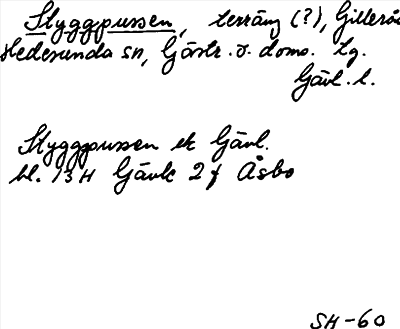 Styggpussen, terräng (?), Gillerås
Hedesunda sn, Gästr. ö. doms. tg.
Gävl. l.
Styggpussen ek Gävl.
bl. 13H Gävle 2 f Åsbo
SH-60